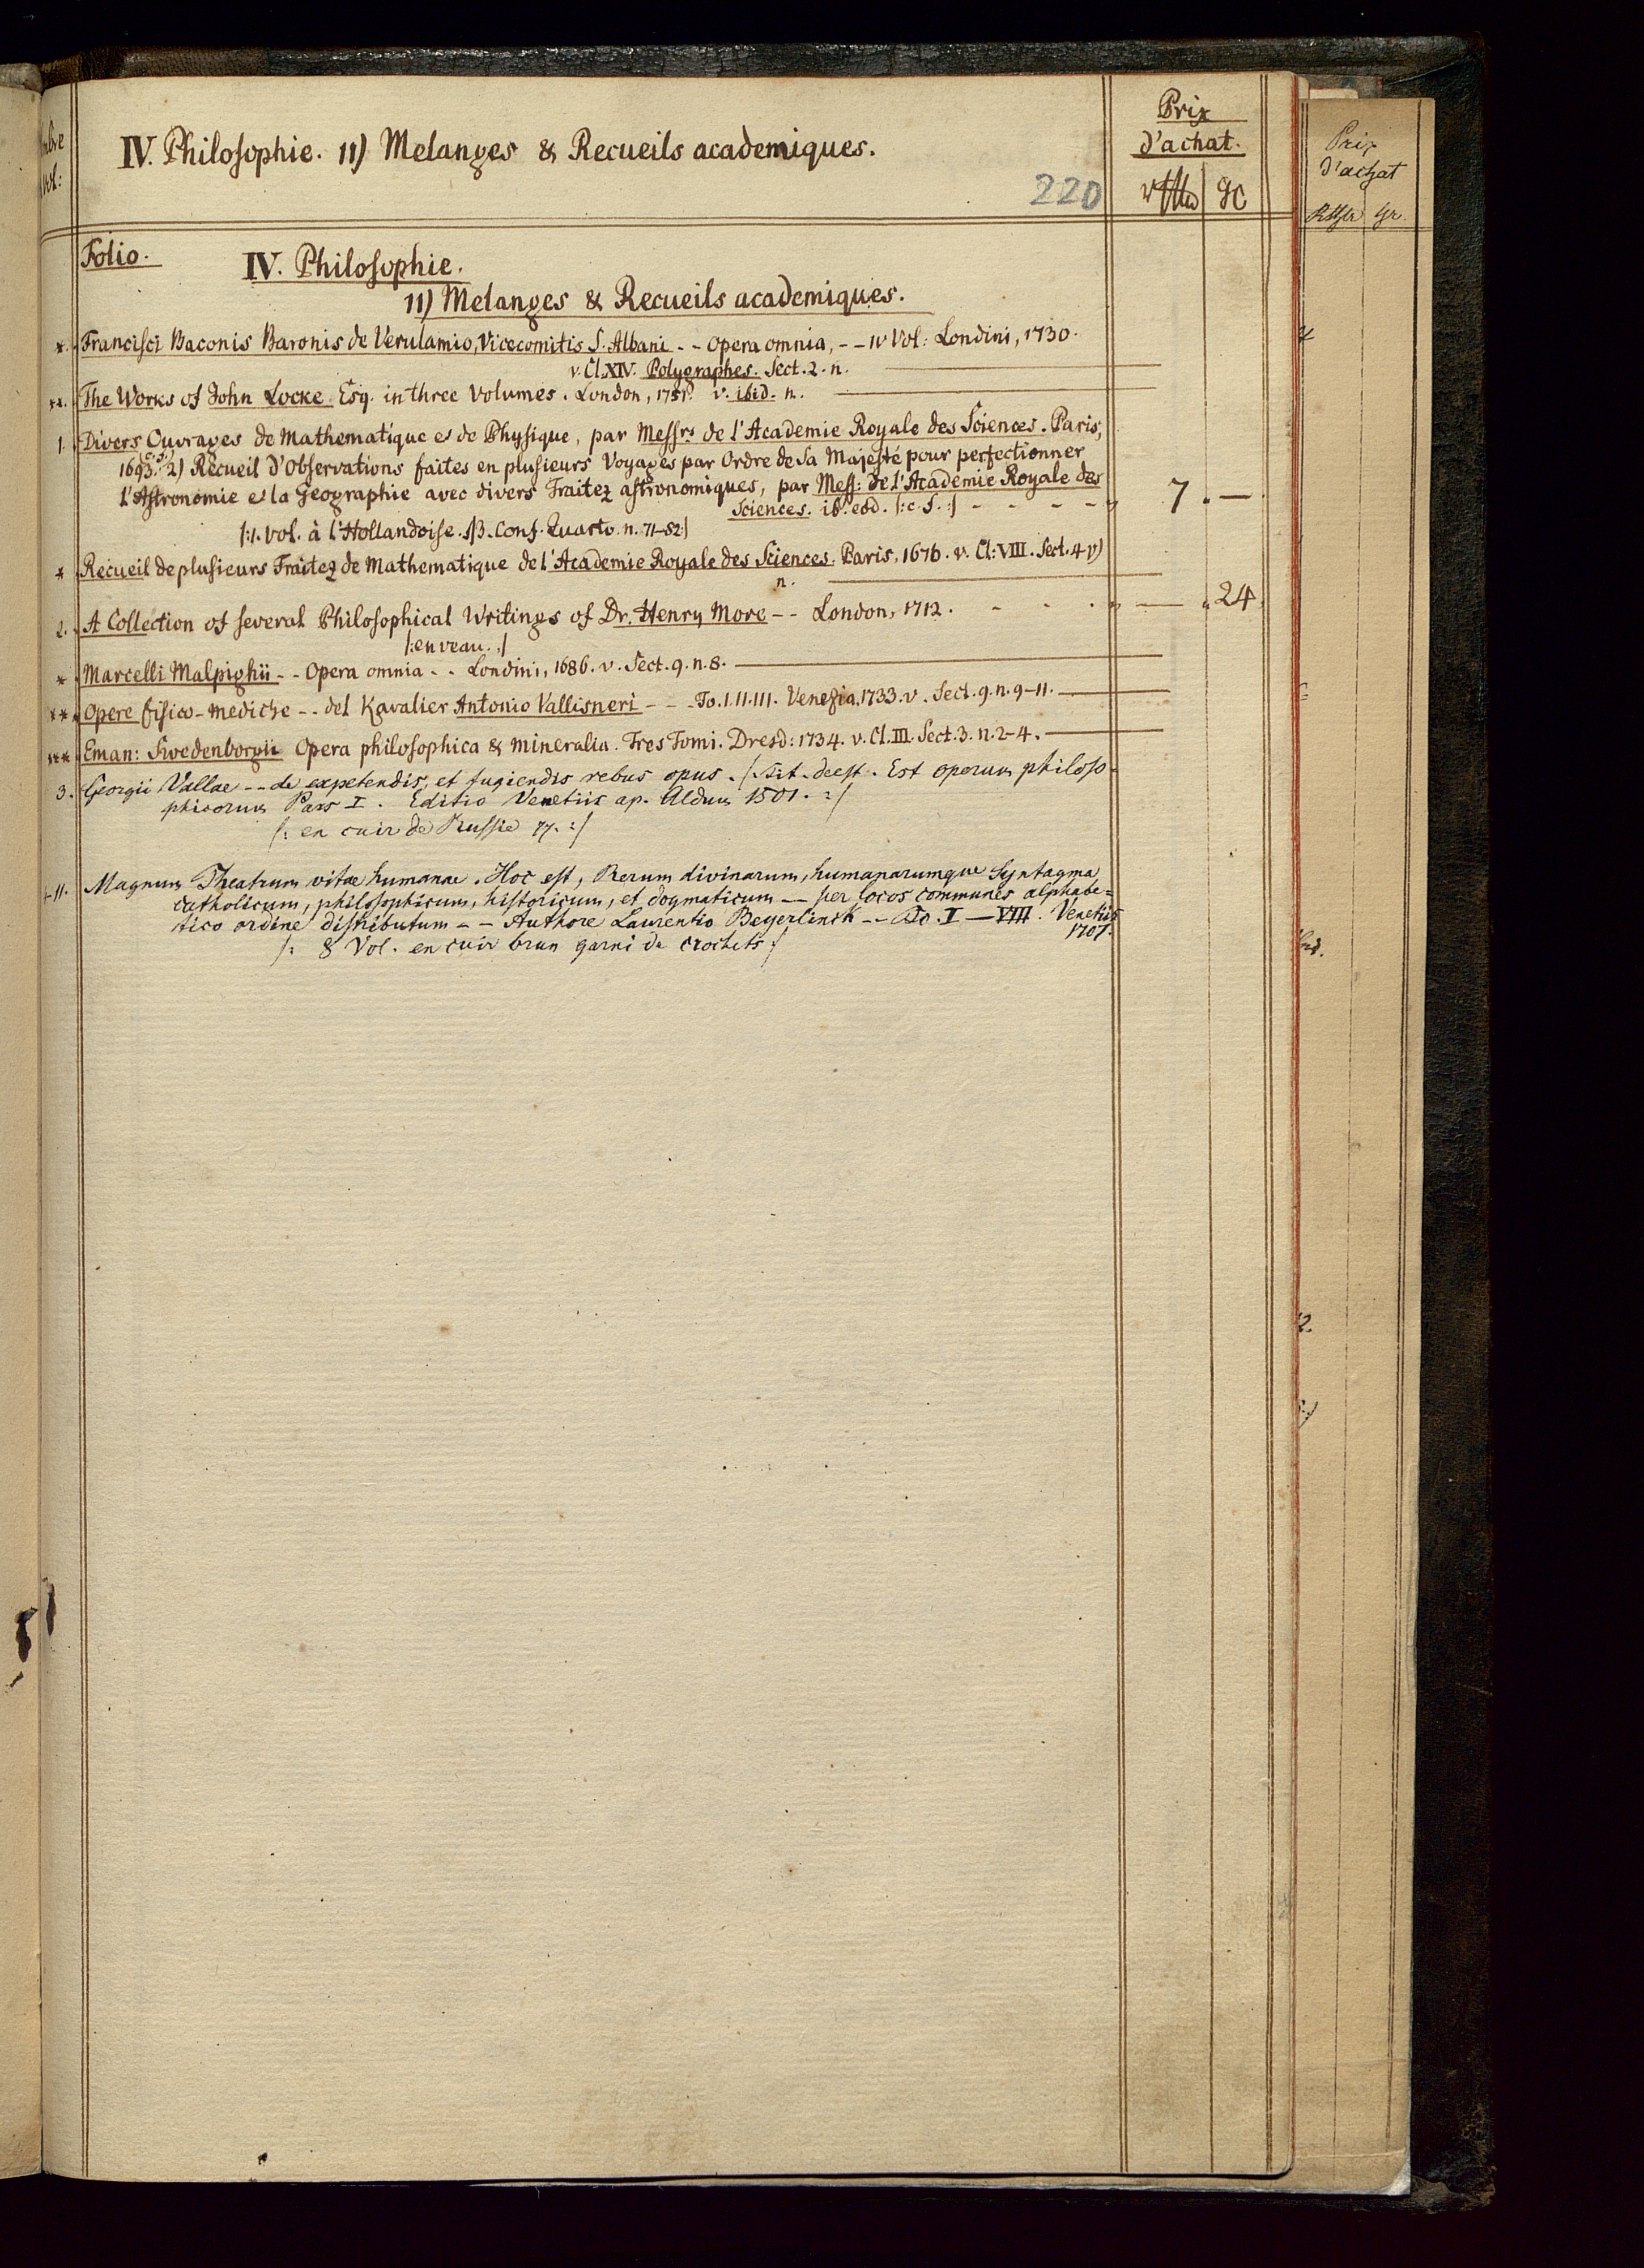 IV. Philosophie. 11) Melanges & Recueils academiques.
220
Prix
d'achat.
Folio.
IV. Philosophie.
11) Melanges & Recueils academiques.
*. Francisci Baconis Baronis de Verulamio, Vicecomitis S. Albani - - Opera omnia, - - IV Vol: Londini, 1730.
v. Cl. XIV. Polygraphes. Sect. 2. n.
**. The Works of John Locke Esq. in three Volumes. London, 1751. v. ibid. n.
1. Divers Ouvrages de Mathematique et de Physique, par Messrs de l'Academie Royale des Sciences. Paris,
1693. 2) Recueil d'Observations faites en plusieurs Voyages par Ordre de Sa Majesté pour perfectionner
l'Astronomie et la Geographie avec divers Traitez astronomiques, par Mess: de l'Academie Royale des
Sciences. ib. eod. /:c. f.:/ - - - - 7. —
/:1. vol. à l'Hollandoise. Conf. Quarto. n. 71-82:/
* Recueil de plusieurs Traitez de Mathematique de l'Academie Royale des Sciences. Paris, 1676. v. Cl: VIII. Sect. 4
n.
2. A Collection of several Philosophical Writings of Dr. Henry More - - London, 1712. - - - — . 24
/:en veau.:/
* Marcelli Malpighii - - Opera omnia - - Londini, 1686. v. Sect. 9. n. 8.
** Opere fisico-mediche - - del Kavalier Antonio Vallisneri - - - To. I. II. III. Venezia, 1733. v. Sect. 9. n. 9-11.
*** Eman: Swedenborgii Opera philosophica & mineralia. Tres Tomi. Dresd: 1734. v. Cl. III. Sect. 3. n. 2-4.
3. Georgii Vallae - - de expetendis, et fugiendis rebus opus. /: Tit. deest. Est operum philoso-
phicorum Pars I. Editio Venetiis ap. Aldum 1501. :/
/: en cuir de Russie :/
-11. Magnum Theatrum vitae humanae. Hoc est, Rerum divinarum, humanarumque Syntagma
catholicum, philosophicum, historicum, et dogmaticum - - per locos communes alphabe=
tico ordine distributum - - Authore Laurentio Beyerlinck - - To. I — VIII. Venetiis
1707.
/: 8 Vol. en cuir brun garni de crochets :/
Prix
d'achat
Rthlr gr.